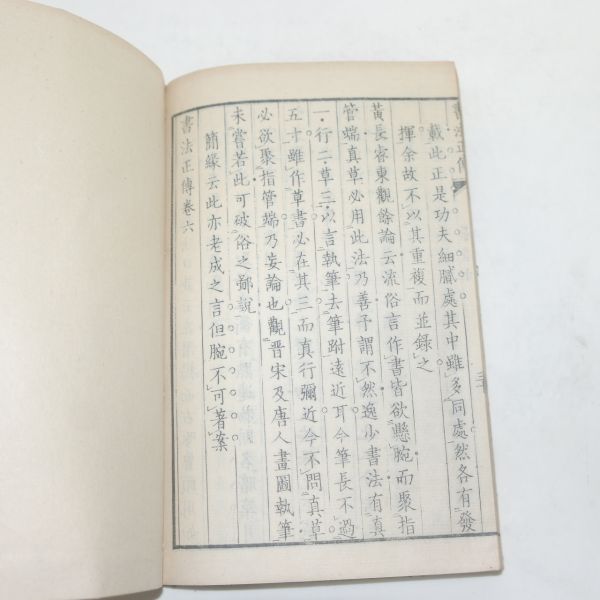 載此正是功夫細膩處其中雖多同處然各有發
揮余故不以其重複而並錄之
黃長睿東觀餘論云流俗言作書皆欲懸腕而聚指
管端真草必用此法乃善予謂不然逸少書法有真
一行二草三以言執筆去筆跗遠近耳今筆長不過
五寸雖作草書必在其三而真行彌近今不問真草
必欲聚指管端乃妄論也觀晉宋及唐人畫圖執筆
未嘗若此可破俗之鄙說
簡緣云此亦老成之言但腕不可著案
書法正傳卷六